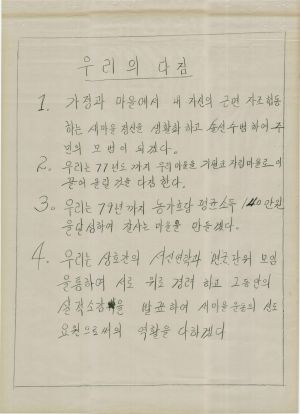 우리의 다짐
1. 가정과 마을에서 내 자신의 근면 자조 협동
하는 새마을 정신을 생활화 하고 솔선수범 하여 주
민의 모범이 되겠다.
2. 우리는 77년도 까지 우리마을을 기필코 자립마을로 이
끌어 올릴 것을 다짐 한다.
3. 우리는 79년 까지 농가호당 평균소득 140만원
을 달성하여 잘사는 마을을 만들겠다.
4. 우리는 상호간의 서신연락과 반군단위 모임
을통하여 서로 위로 격려 하고 그동안의
실적소장을 발표하여 새마을운동의 선도
요원으로써의 역활을 다하겠다